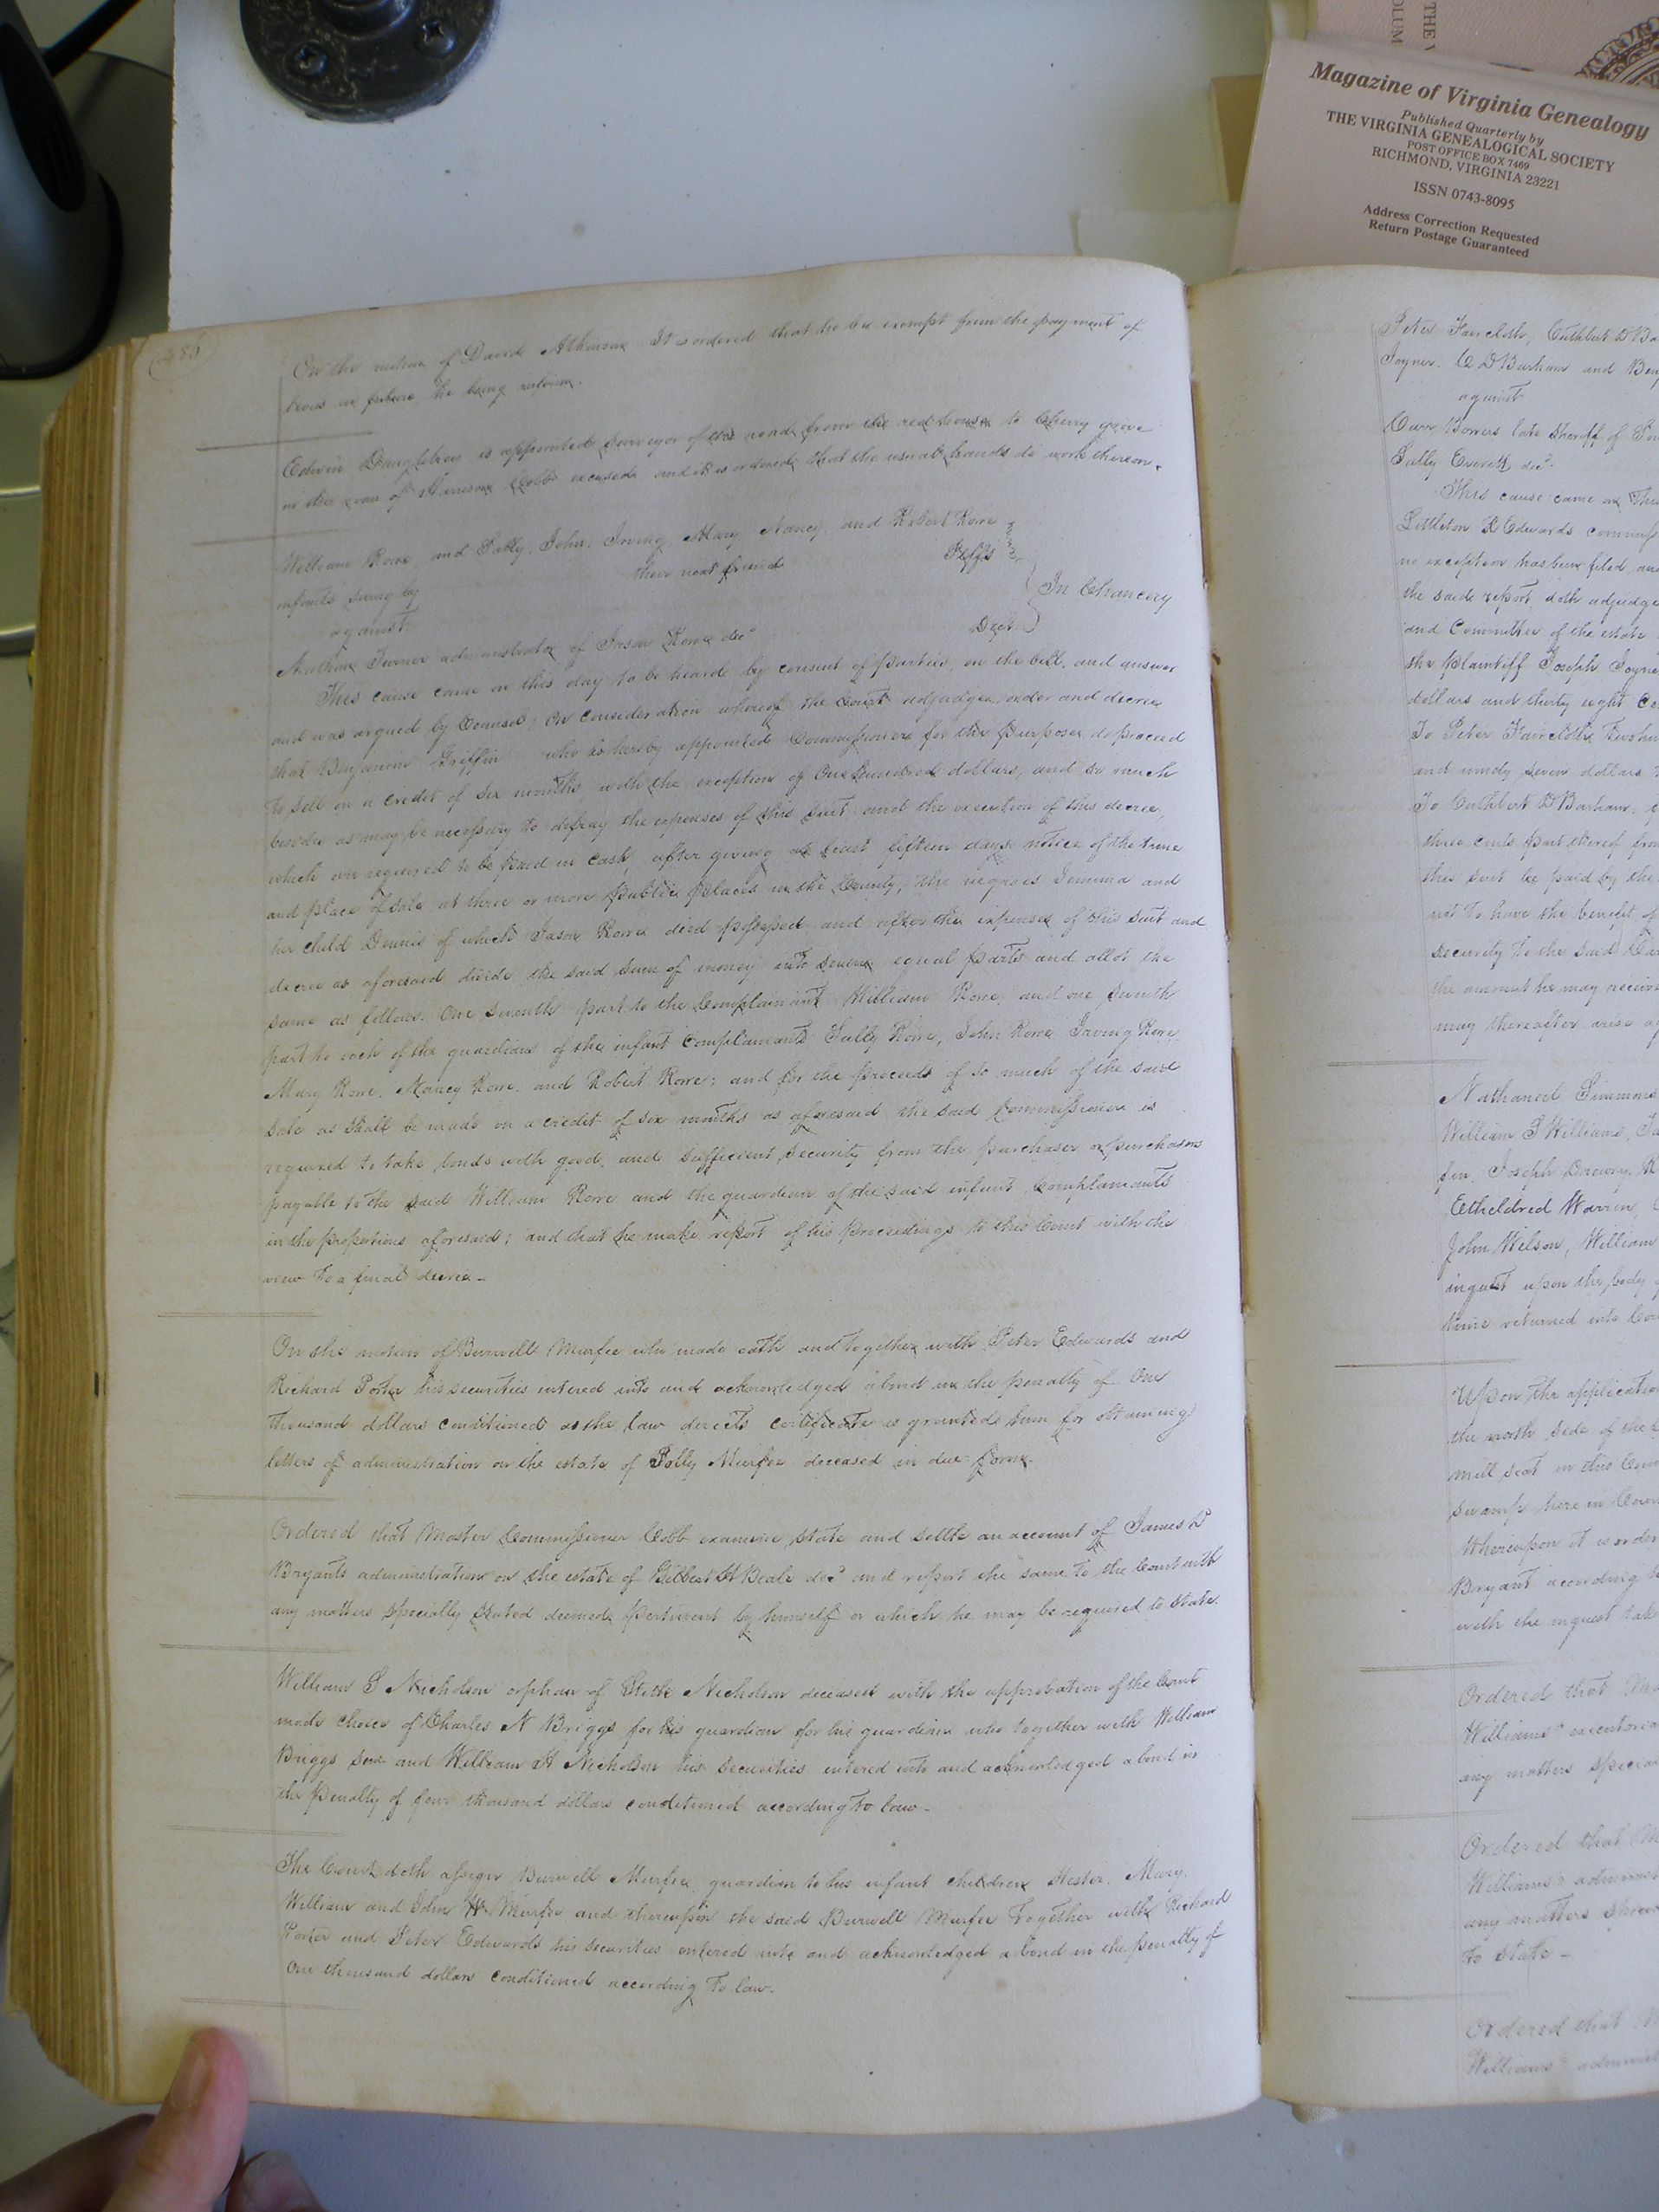 THE V
OLUM
Magazine of Virginia Genealogy
Published Quarterly by
THE VIRGINIA GENEALOGICAL SOCIETY
POST OFFICE BOX 7469
RICHMOND, VIRGINIA 23221
ISSN 0743-8095
Address Correction Requested
Return Postage Guaranteed
On the motion of David Atkinson It is ordered that he be exempt from the payment of
in future he being infirm.
Edwin Daughtrey is appointed surveyor of the road from the red house to Cherry grove
in the room of Cobb excused and it is ordered that the usual hands do work thereon.
William Rowe and Sally, John, Irving, Mary, Nancy, and Robert Rowe
infants suing by their next friend Pltffs
against In Chancery
Arthur Turner administrator of Jason Rowe decd Deft.
This cause came on this day to be heard by consent of parties, on the bill, and answer
and was argued by Counsel; On consideration whereof the Court adjudges, order and decree
that Benjamin Griffin who is hereby appointed Commissioner for the purpose, do proceed
to sell on a credit of six months, with the exception of One hundred dollars, and so much
besides as may be necessary to defray the expenses of this suit and the execution of this decree,
which are required to be paid in cash, after giving at least fifteen days notice of the time
and place of sale at three or more public places in the County, the negroes Jemima and
her child Dennis of which Jason Rowe died possessed, and after the expenses of this suit and
decree as aforesaid divide the said sum of money into seven equal parts and allot the
same as follows. One seventh part to the Complainant William Rowe, and one seventh
part to each of the guardians of the infant Complainants Sally Rowe, John Rowe Irving Rowe
Mary Rowe, Nancy Rowe, and Robert Rowe; and for the proceeds of so much of the said
sale as shall be made on a credit of six months as aforesaid the said Commissioner is
required to take bonds with good, and sufficient security from the purchaser or purchasers
payable to the said William Rowe and the guardian of the said infant Complainants
in the proportions aforesaid; and that he make report of his proceedings to this Court with the
view to a final decree-
On the motion of Burwell Murfee who made oath and together with Peter Edwards and
Richard Porter his securities entered into and acknowledged a bond in the penalty of One
thousand dollars conditioned as the law directs certificate is granted him for obtaining
letters of administration on the estate of Polly Murfee deceased in due form.
Ordered that Master Commissioner Cobb examine, state and settle an account of James D
Bryants administration on the estate of Gilbert H Beale decd and report the same to the Court with
any matters specially stated deemed pertinent by himself or which he may be required to state.
William S Nicholson orphan of Stith Nicholson deceased with the approbation of the Court
made choice of Charles N Briggs for his guardian for his guardian who together with William
Briggs and William H Nicholson his securities entered into and acknowledged a bond in
the penalty of four thousand dollars conditioned according to law-
The Court doth assign Burwell Murfee guardian to his infant children Hester, Mary,
William and John H Murfee and thereupon the said Burwell Murfee together with Richard
Porter and Peter Edwards his securities entered into and acknowledged a bond in the penalty of
One thousand dollars conditioned according to law.
Peter Faircloth, Cuthbert D Ba
Joyner. C D Barham and Ben
against
late Sheriff of
Sally Everett decd.
This cause came on
Littleton R Edwards commiss
no exception has been filed, and
the said report, doth adjudge
and Committee of the estate
the plaintiff Joseph Joyne
dollars and thirty eight ce
To Peter Faircloth
and ninety seven dollars
To Cuthbert D Barham
three cents part thereof from
this suit be paid by the
not to have the benefit of
security to the said
the amount he may receive
may thereafter arise
Nathaniel Simmons
William S Williams,
Joseph Drewry, R
Etheldred Warren,
John Wilson, William
inquest upon the body
time returned into Cou
Upon the application
the north side of the
mill seat on this
swamp here in Cou
Whereupon it is order
Bryant according to
with the inquest take
Ordered that
Williams' executor
any matters special
Ordered that M
Williams' adminis
any matters
to state-
Ordered that M
Williams' adminis